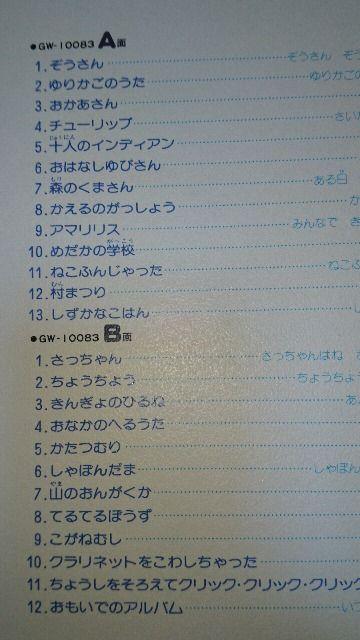 ●GW-10083 A面
1.ぞうさん……ぞうさん ぞ
2.ゆりかごのうた……ゆりかご
3.おかあさん
4.チューリップ……さい
5.十人のインディアン
6.おはなしゆびさん
7.森のくまさん……ある日
8.かえるのがっしょう……か
9.アマリリス……みんなで き
10.めだかの学校
11.ねこふんじゃった……ねこふ
12.村まつり
13.しずかなこはん……し
●GW-10083 B面
1.さっちゃん……さっちゃんはね
2.ちょうちょう……ちょうちょう
3.きんぎょのひるね……あ
4.おなかのへるうた
5.かたつむり
6.しゃぼんだま……しゃぼん
7.山のおんがくか
8.てるてるぼうず
9.こがねむし
10.クラリネットをこわしちゃった
11.ちょうしをそろえてクリック・クリック・クリック
12.おもいでのアルバム……いつ